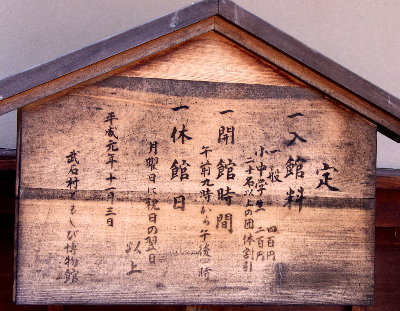 定
一入館料
一般 四百円
小中学生 二百円
二十名以上の団体割引
一開館時間
午前九時から午後四時
一休館日
月曜日と祝日の翌日
以上
平成元年十一月三日
武石村ともしび博物館